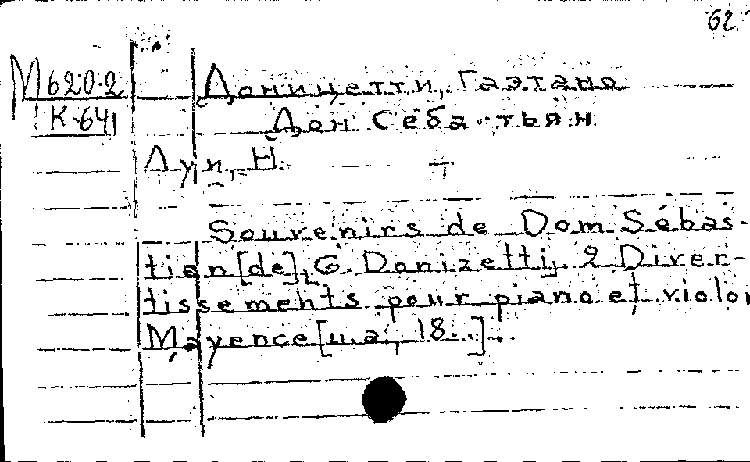 62
М620-2 Доницетти, Гаэтано
К-641 Дон Себастьян
Луи, Н.
Souvenirs de Dom Sébas-
tian [de] G. Donizetti, 2 Diver-
tissements pour piano et violo
Mayence [u.a., 18..].